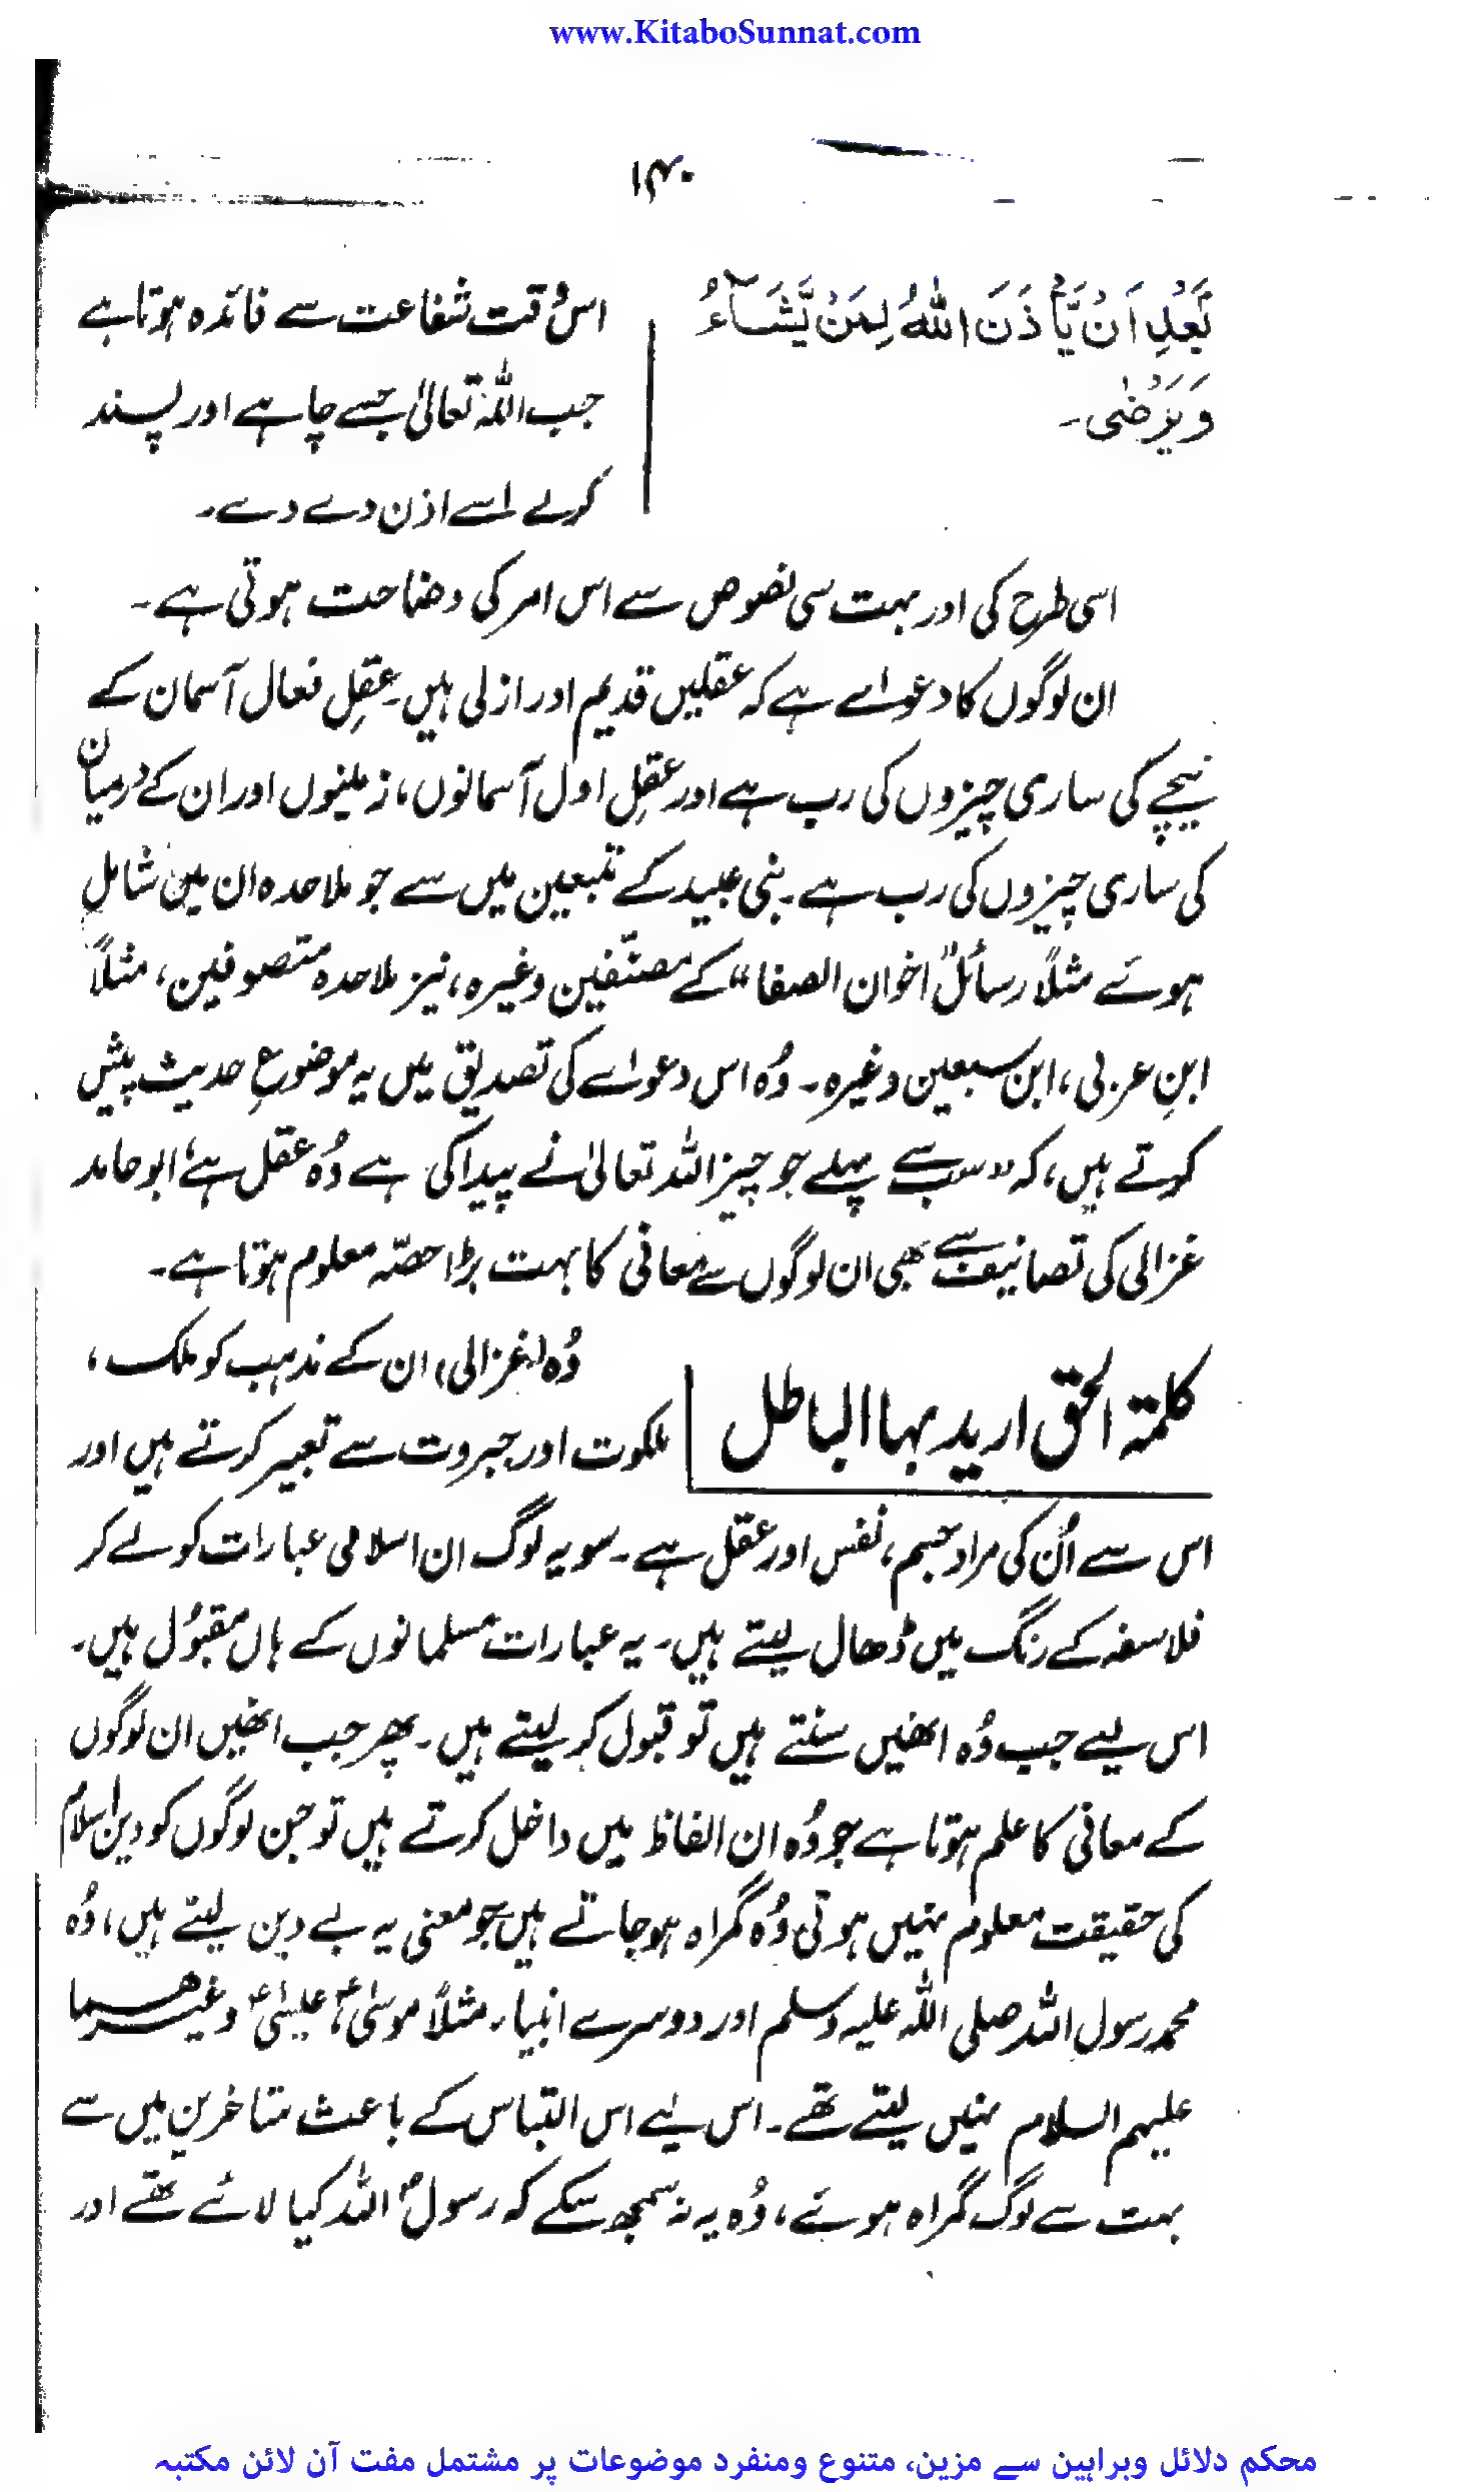 www.KitaboSunnat.com
۱۴۰
بَعْدِ اَنْ يَّأْذَنَ اللّٰهُ لِمَنْ يَّشَآءُ
وَيَرْضٰى۔
اسُ وقت شفاعت سے فائدہ ہوتا ہے
جب اللہ تعالیٰ جسے چاہے اور پسند
کرلے اسے اذن دے دے۔
اسی طرح کی اور بہت سی نصوص سے اس امر کی وضاحت ہوتی ہے۔
ان لوگوں کا دعوےٰ ہے کہ عقلیں قدیم اور ازلی ہیں۔ عقلِ فعال آسمان کے
نیچے کی ساری چیزوں کی رب ہے اور عقلِ اول آسمانوں، زمینوں اور ان کے درمیان
کی ساری چیزوں کی رب ہے۔ بنی عبید کے متبعین میں سے جو ملاحدہ ان میں شامل
ہوئے مثلاً رسائل "اخوان الصفا" کے مصنّفین وغیرہ، نیز ملاحدہ متصوفین، مثلاً
ابنِ عربی، ابن سبعین وغیرہ۔ وُہ اس دعوےٰ کی تصدیق میں یہ موضوع حدیث پیش
کرتے ہیں، کہ "سب سے پہلے جو چیز اللہ تعالیٰ نے پیدا کی ہے وُہ عقل ہے" ابو حامد
غزالی کی تصانیف سے بھی ان لوگوں سے معافی کا بہت بڑا حصّہ معلوم ہوتا ہے۔
کلمۃ الحق ارید بہا الباطل
وُہ (غزالی) ان کے مذہب کو ملک،
ملکوت اور جبروت سے تعبیر کرتے ہیں اور
اس سے اُن کی مراد جسم، نفس اور عقل ہے۔ سو یہ لوگ ان اسلامی عبارات کو لے کر
فلاسفہ کے رنگ میں ڈھال لیتے ہیں۔ یہ عبارات مسلمانوں کے ہاں مقبُول ہیں۔
اس لیے جب وُہ انھیں سنتے ہیں تو قبول کر لیتے ہیں۔ پھر جب انھیں ان لوگوں
کے معانی کا علم ہوتا ہے جو وُہ ان الفاظ میں داخل کرتے ہیں تو جن لوگوں کو دین اسلام
کی حقیقت معلوم نہیں ہوتی وُہ گمراہ ہو جاتے ہیں جو معنی یہ بے دین لیتے ہیں، وُہ
محمد رسول اللہ صلی اللہ علیہ وسلم اور دوسرے انبیاء مثلاً موسیٰؑ، عیسیٰؑ وغیرھما
علیہم السلام نہیں لیتے تھے۔ اس لیے اس التباس کے باعث متاخرین میں سے
بہت سے لوگ گمراہ ہوئے، وُہ یہ نہ سمجھ سکے کہ رسولؐ اللہ کیا لائے تھے اور
محکم دلائل وبراہین سے مزین، متنوع ومنفرد موضوعات پر مشتمل مفت آن لائن مکتبہ